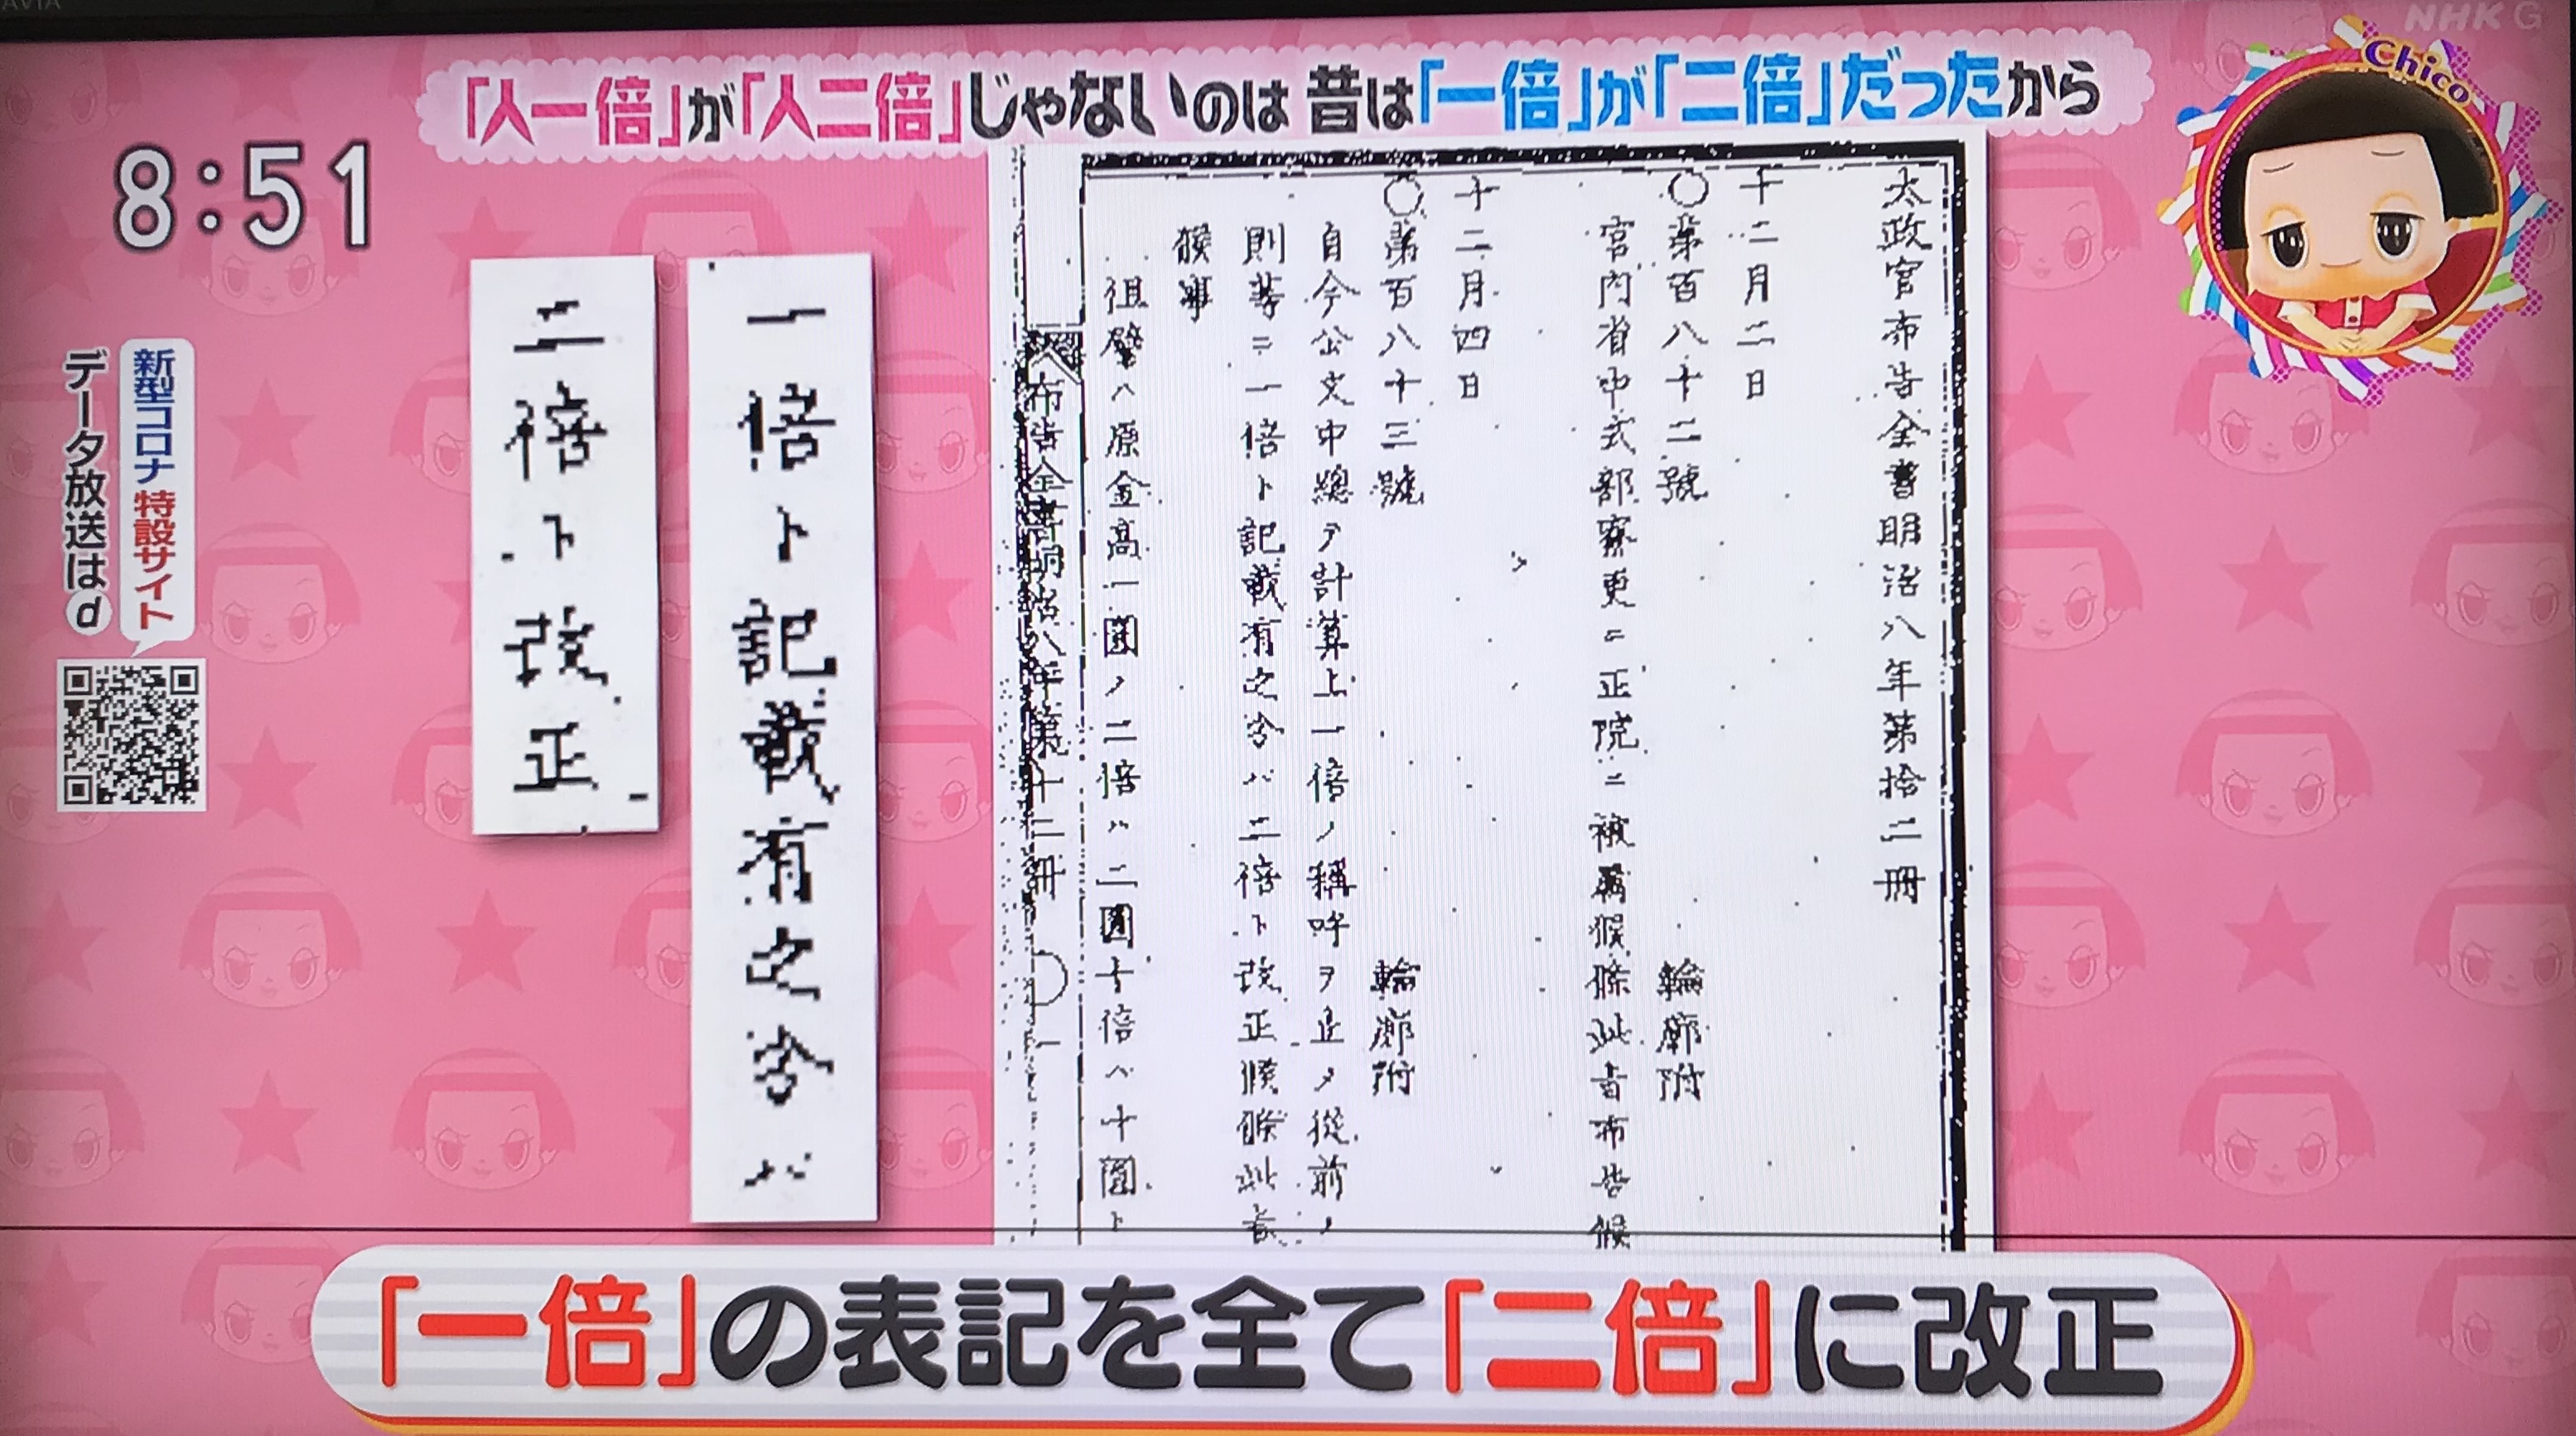 AVIA
NHK G
「人一倍」が「人二倍」じゃないのは 昔は「一倍」が「二倍」だったから
Chico
8:51
太政官布告全書明治八年第拾二冊
十二月二日
〇第百八十二號 輪廓附
宮内省中式部寮更ニ正院ニ被属候條此旨布告候
十二月四日
〇第百八十三號 輪廓附
自今公文中總テ計算上一倍ノ稱呼ヲ止メ從前ノ
則等ニ一倍ト記載有之分ハ二倍ト改正候條此旨
候事
但譬ハ原金高一圓ノ二倍ハ二圓十倍ハ十圓ト
布告全書明治八年第十二冊 〇一
一倍ト記載有之分ハ
二倍ト改正
新型コロナ 特設サイト
データ放送はd
「一倍」の表記を全て「二倍」に改正